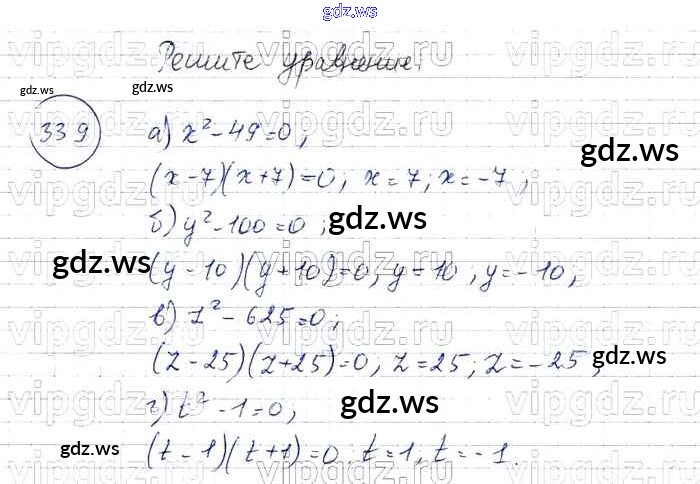 gdz.ws
Решите уравнение.
gdz.ws gdz.ws
339 а) x² - 49 = 0;
gdz.ws
(x - 7)(x + 7) = 0; x = 7; x = -7;
б) y² - 100 = 0; gdz.ws
gdz.ws
(y - 10)(y + 10) = 0; y = 10, y = -10;
в) z² - 625 = 0;
(z - 25)(z + 25) = 0; z = 25; z = -25;
gdz.ws
г) t² - 1 = 0; gdz.ws
gdz.ws
(t - 1)(t + 1) = 0. t = 1, t = -1.
vipgdz.ru vipgdz.ru